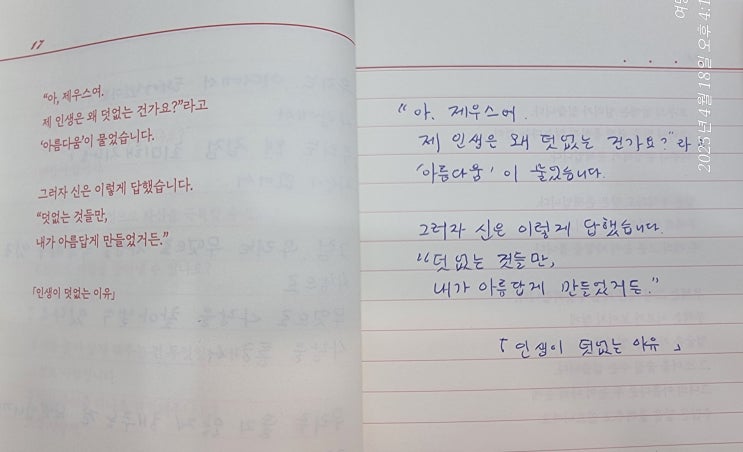 17
“아, 제우스여.
제 인생은 왜 덧없는 건가요?”라고
‘아름다움’이 물었습니다.
그러자 신은 이렇게 답했습니다.
“덧없는 것들만,
내가 아름답게 만들었거든.”
「인생이 덧없는 이유」
“아. 제우스여.
제 인생은 왜 덧없는 건가요?”라
‘아름다움’이 물었습니다.
그러자 신은 이렇게 답했습니다.
“덧없는 것들만,
내가 아름답게 만들었거든.”
「인생이 덧없는 이유」
2025년 4월 18일 오후 4:1